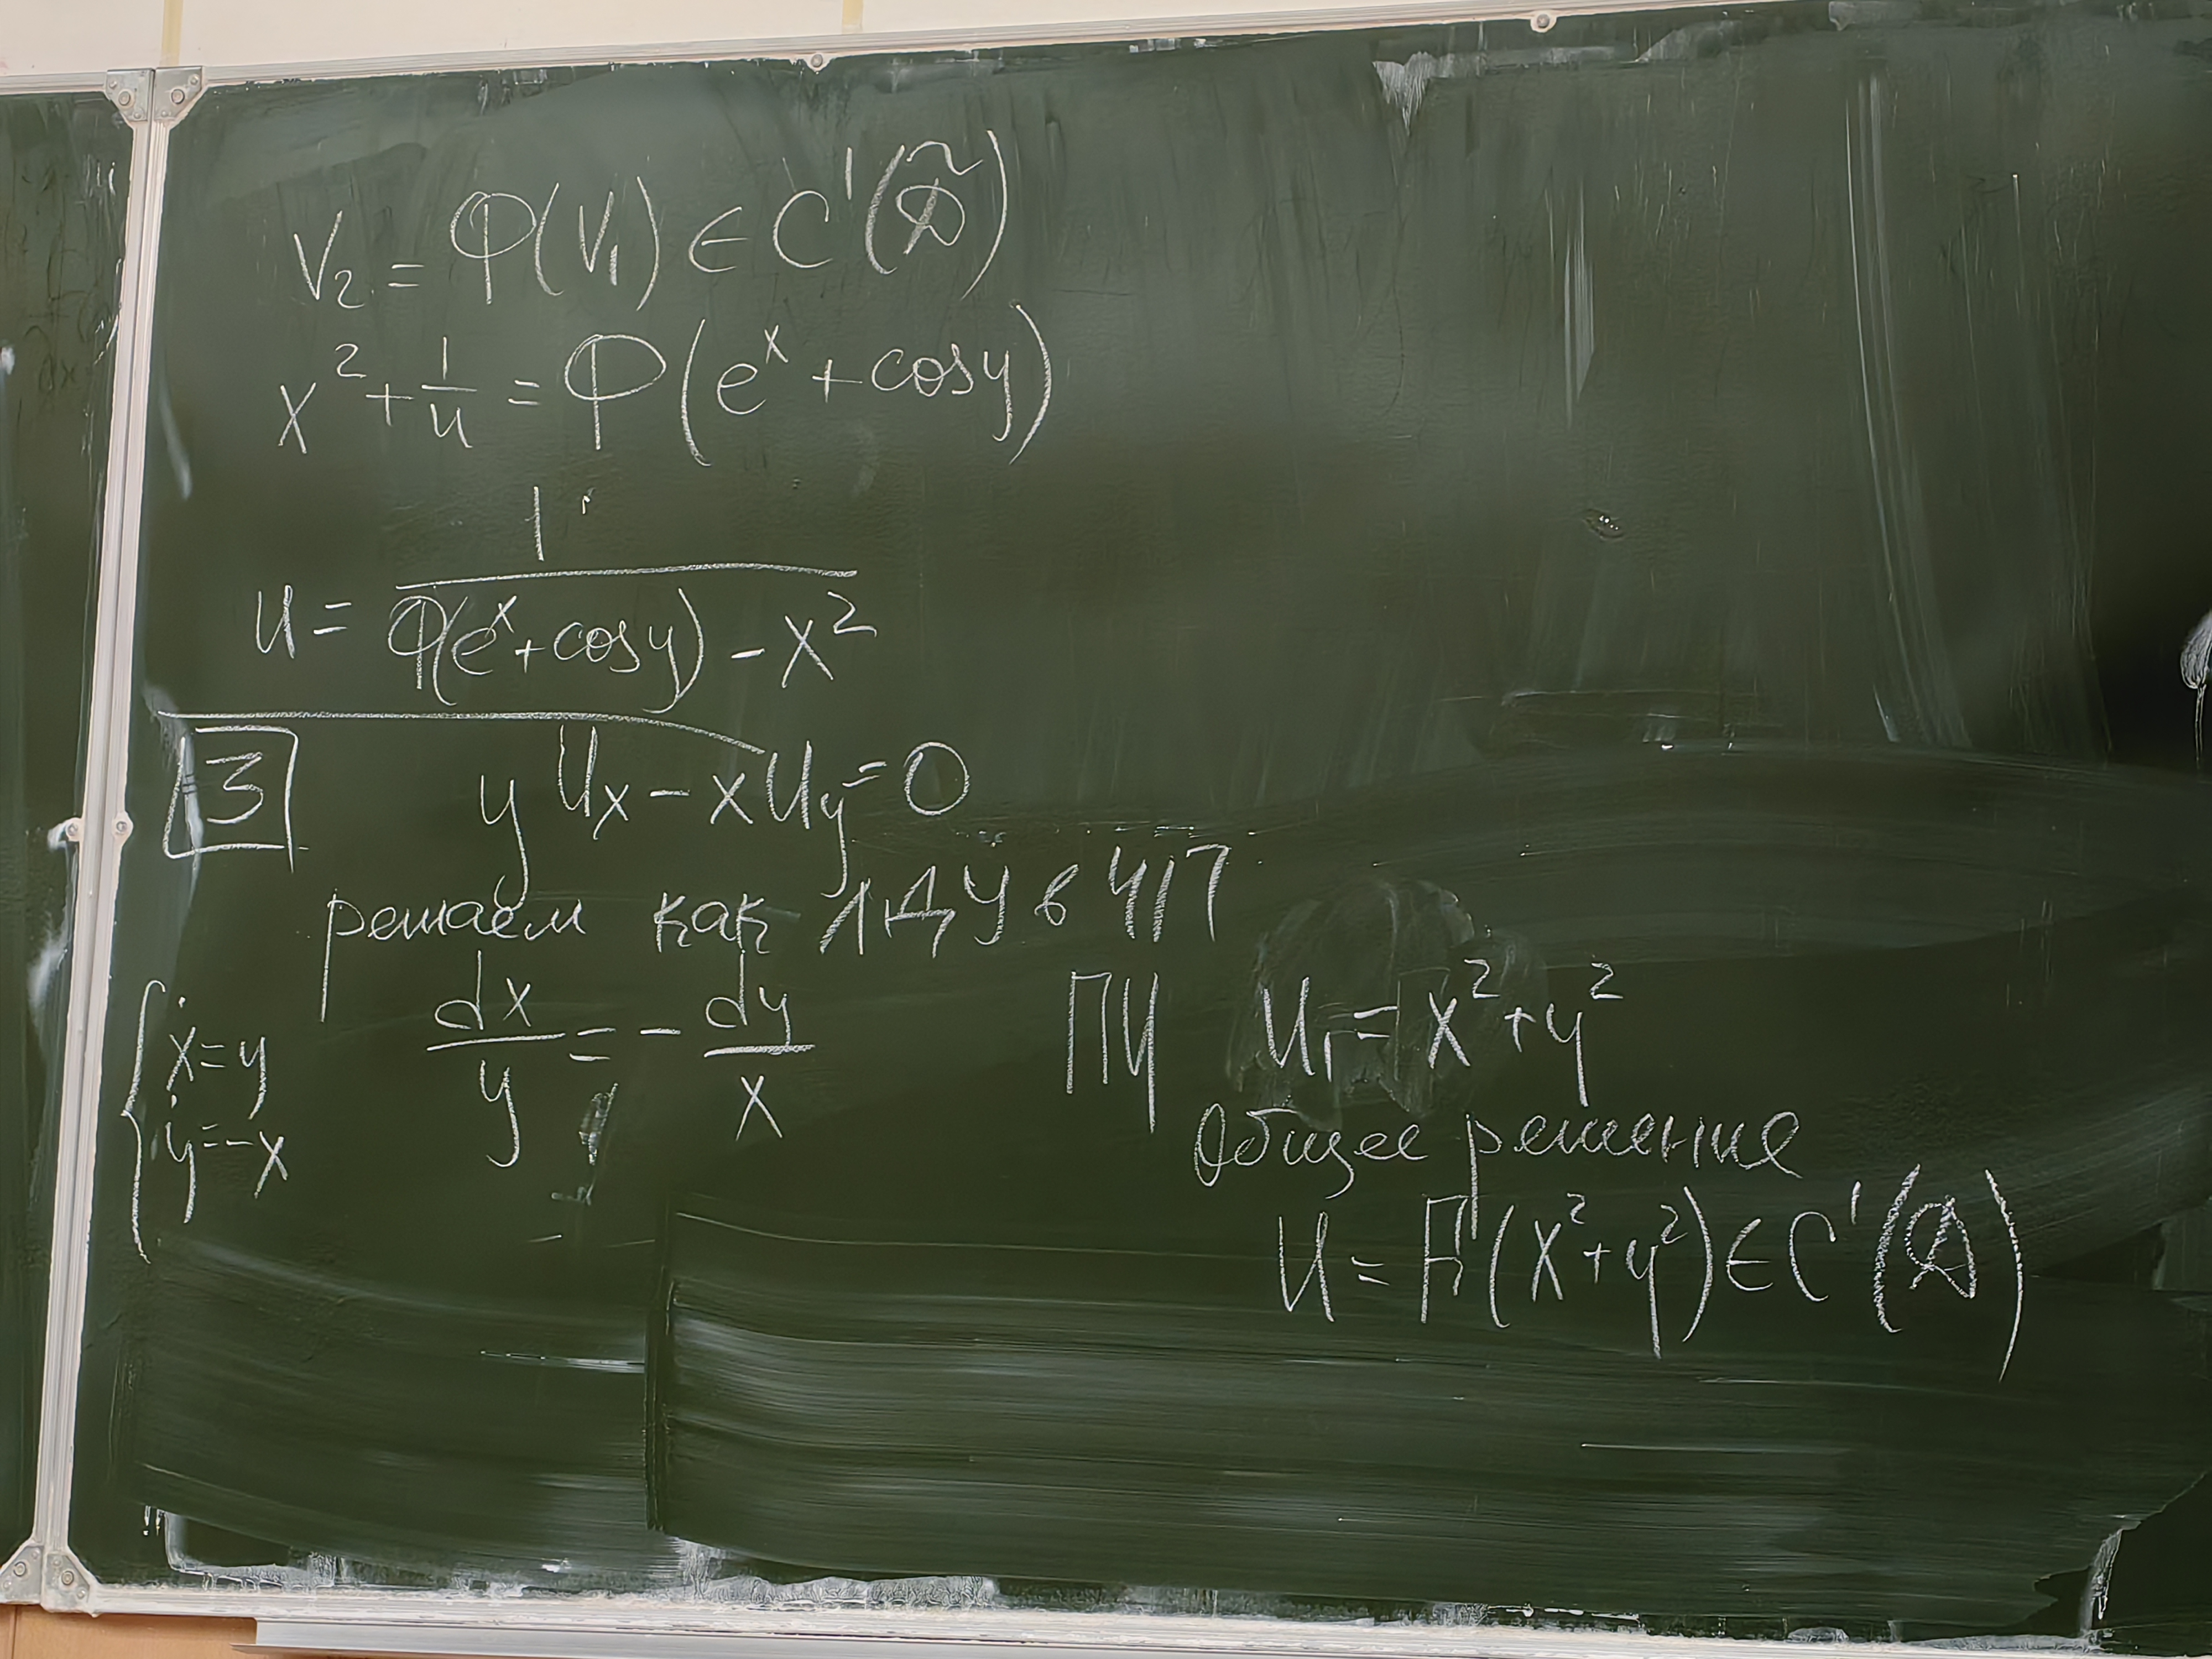 V₂ = Φ(V₁) ∈ C¹(D̃)
x² + 1/u = Φ(eˣ + cosy)
u = 1/(Φ(eˣ + cosy) - x²)
3 y uₓ - x u_y = 0
решаем как ЛДУ в ЧП
{ẋ = y
ẏ = -x
dx/y = - dy/x
ПИ u₁ = x² + y²
Общее решение
u = F(x² + y²) ∈ C¹(D)